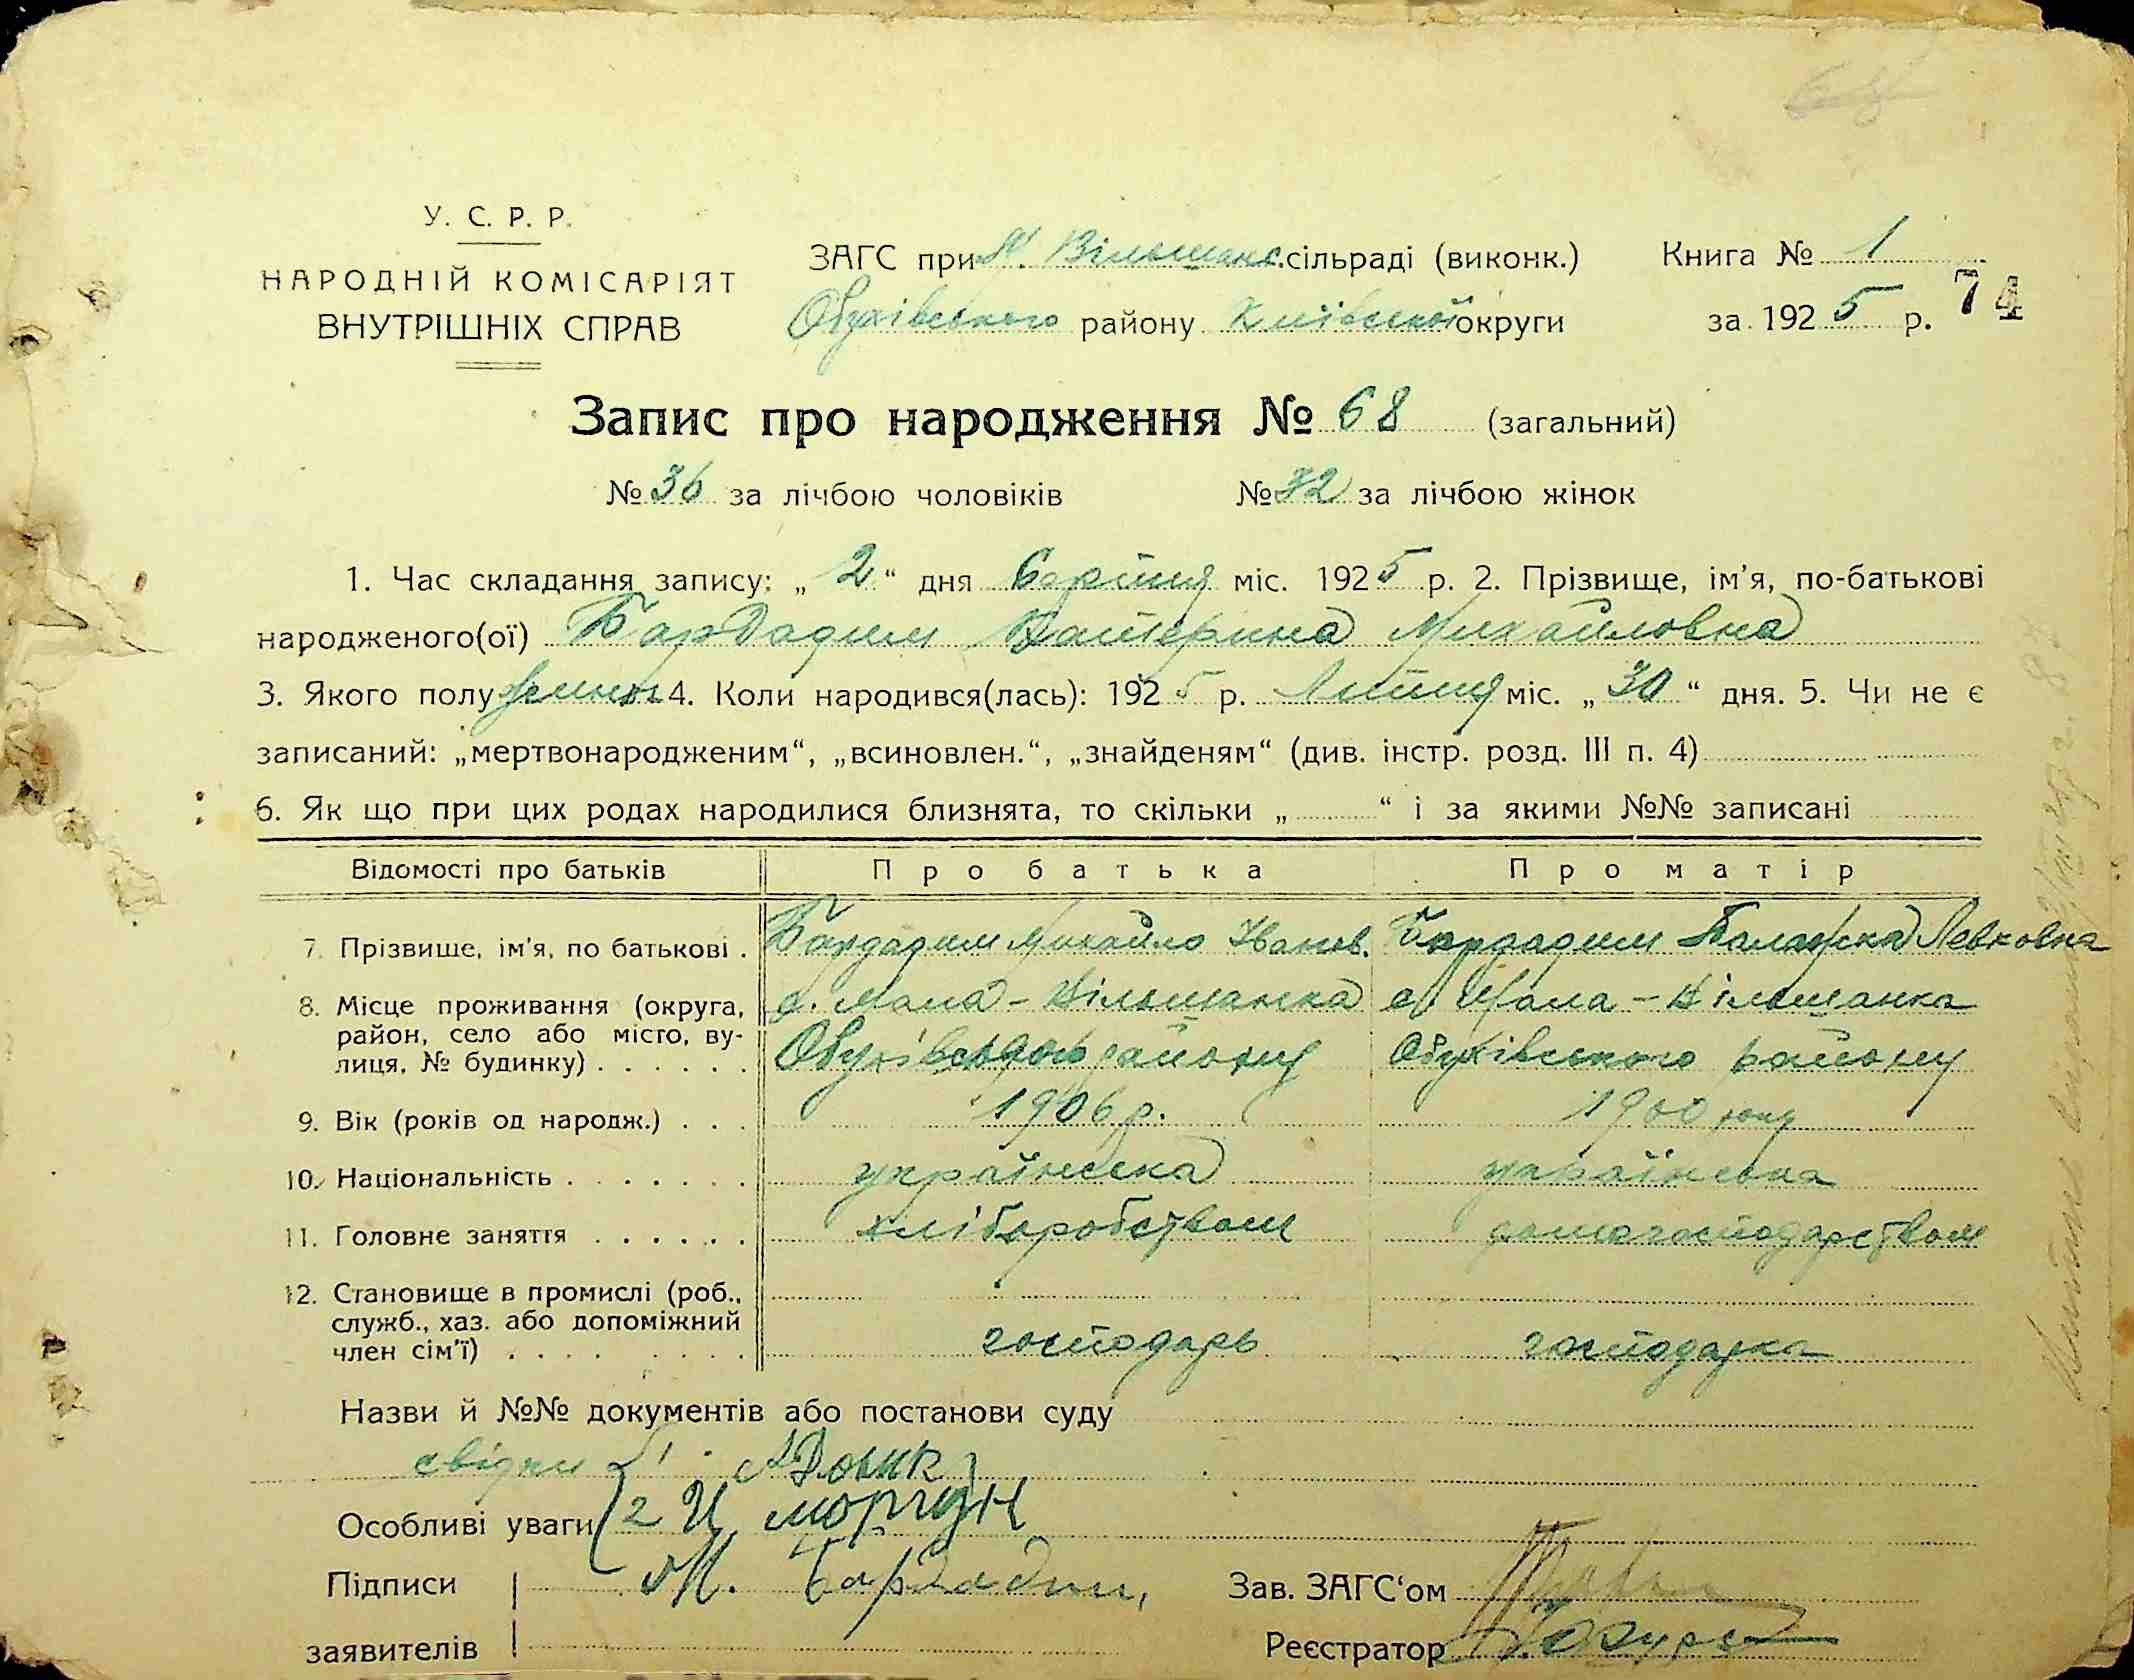 У. С. Р. Р.
НАРОДНІЙ КОМІСАРІЯТ
ВНУТРІШНІХ СПРАВ
ЗАГС при М. Вільшанс. сільраді (виконк.)
Обухівського району Київської округи
Книга № 1
за 1925 р.
74
Запис про народження № 68 (загальний)
№ 36 за лічбою чоловіків № 32 за лічбою жінок
1. Час складання запису: „ 2 “ дня Серпня міс. 1925 р. 2. Прізвище, ім'я, по-батькові
народженого(ої) Бардадим Катерина Михайловна
3. Якого полу 4. Коли народився(лась): 1925 р. Липня міс. „ 30 “ дня. 5. Чи не є
записаний: „мертвонародженим“, „всиновлен.“, „знайденям“ (див. інстр. розд. III п. 4)
6. Як що при цих родах народилися близнята, то скільки „ “ і за якими №№ записані
Відомості про батьків Про батька Про матір
7. Прізвище, ім'я, по батькові . Бардадим Михайло Іванов. Бардадим Палажка Левковна
8. Місце проживання (округа, с. Мала - Вільшанка с. Мала - Вільшанка
район, село або місто, ву- Обухівського району Обухівського району
лиця, № будинку) . . . . . .
9. Вік (років од народж.) . . . 1906 р. 1900 року
10. Національність . . . . . . . українська українська
11. Головне заняття . . . . . . хліборобством домогосподарством
12. Становище в промислі (роб.,
служб., хаз. або допоміжний
член сім'ї) . . . . . . . . господарь господарка
Назви й №№ документів або постанови суду
свідки 1
Особливі уваги 2 И моргун
Підписи М. Бардадим, Зав. ЗАГС'ом
заявителів Реєстратор